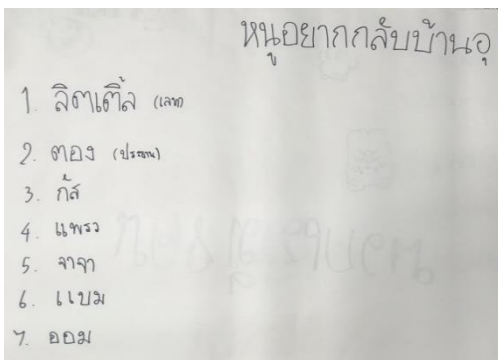 หนูอยากกลับบ้านอุ
1. ลิตเติ้ล (เลขา)
2. ตอง (ประธาน)
3. กัส
4. แพรว
5. จาจา
6. แบม
7. ออม